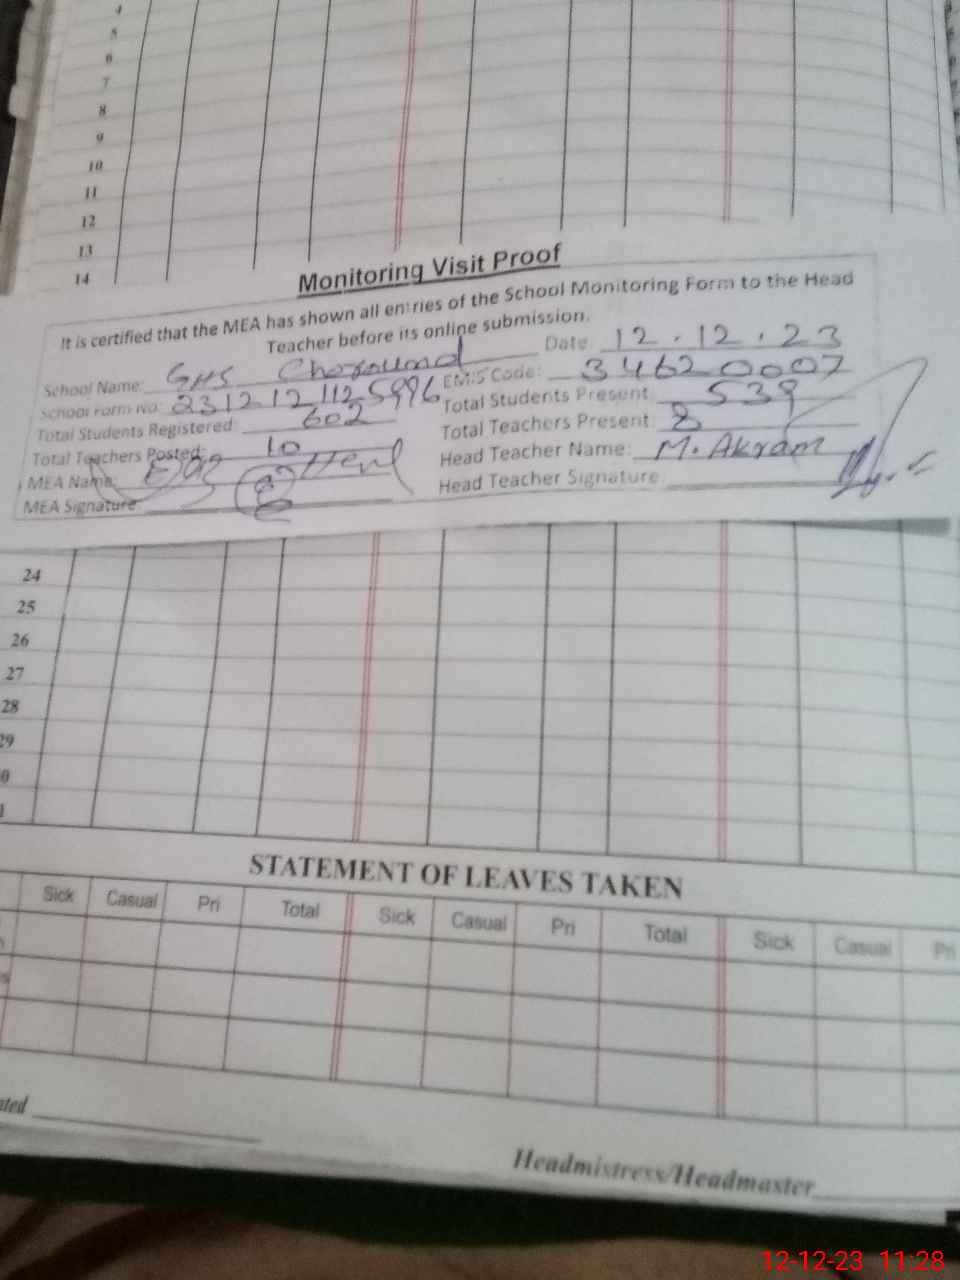 4
5
6
7
8
9
10
11
12
13
14
Monitoring Visit Proof
It is certified that the MEA has shown all entries of the School Monitoring Form to the Head
Teacher before its online submission.
School Name: GHS Date 12.12.23
School Form No: EMIS Code: 34620007
Total Students Registered 602 Total Students Present 539
Total Teachers Posted: 10 Total Teachers Present: 8
MEA Name: Head Teacher Name: M. Akram
MEA Signature: Head Teacher Signature:
24
25
26
27
28
29
0
STATEMENT OF LEAVES TAKEN
Sick Casual Pri Total Sick Casual Pri Total Sick Casual Pri
ated
Headmistress/Headmaster
12-12-23 11:28